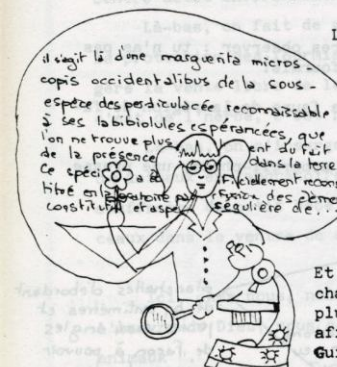 il s'agit là d'une marguerita micros-
copis occidentalibus de la sous-
espèce des perdiculacée reconnaissable
à ses labibiolules espérancées, que
l'on ne trouve plus ent du fait
de la présence dans la terre
Ce spéci a été ficiellement recons
titué en laboratoire par fusion des éléme
constitutif et aspe ségulière de...
Et
cha
plu
afi
Gui